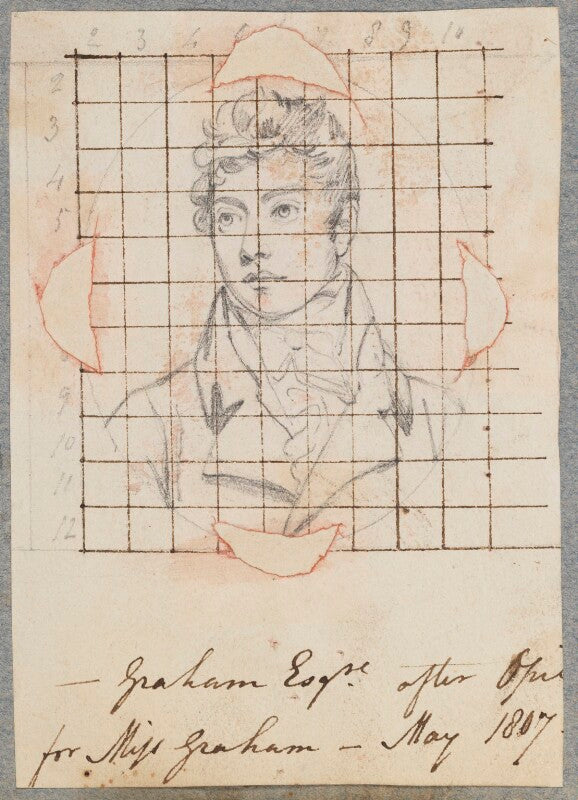 2 3 4 6 7 8 9 10
2
3
4
5
9
10
11
12
— Graham Esqre. after Opie
for Miss Graham — May 1807.